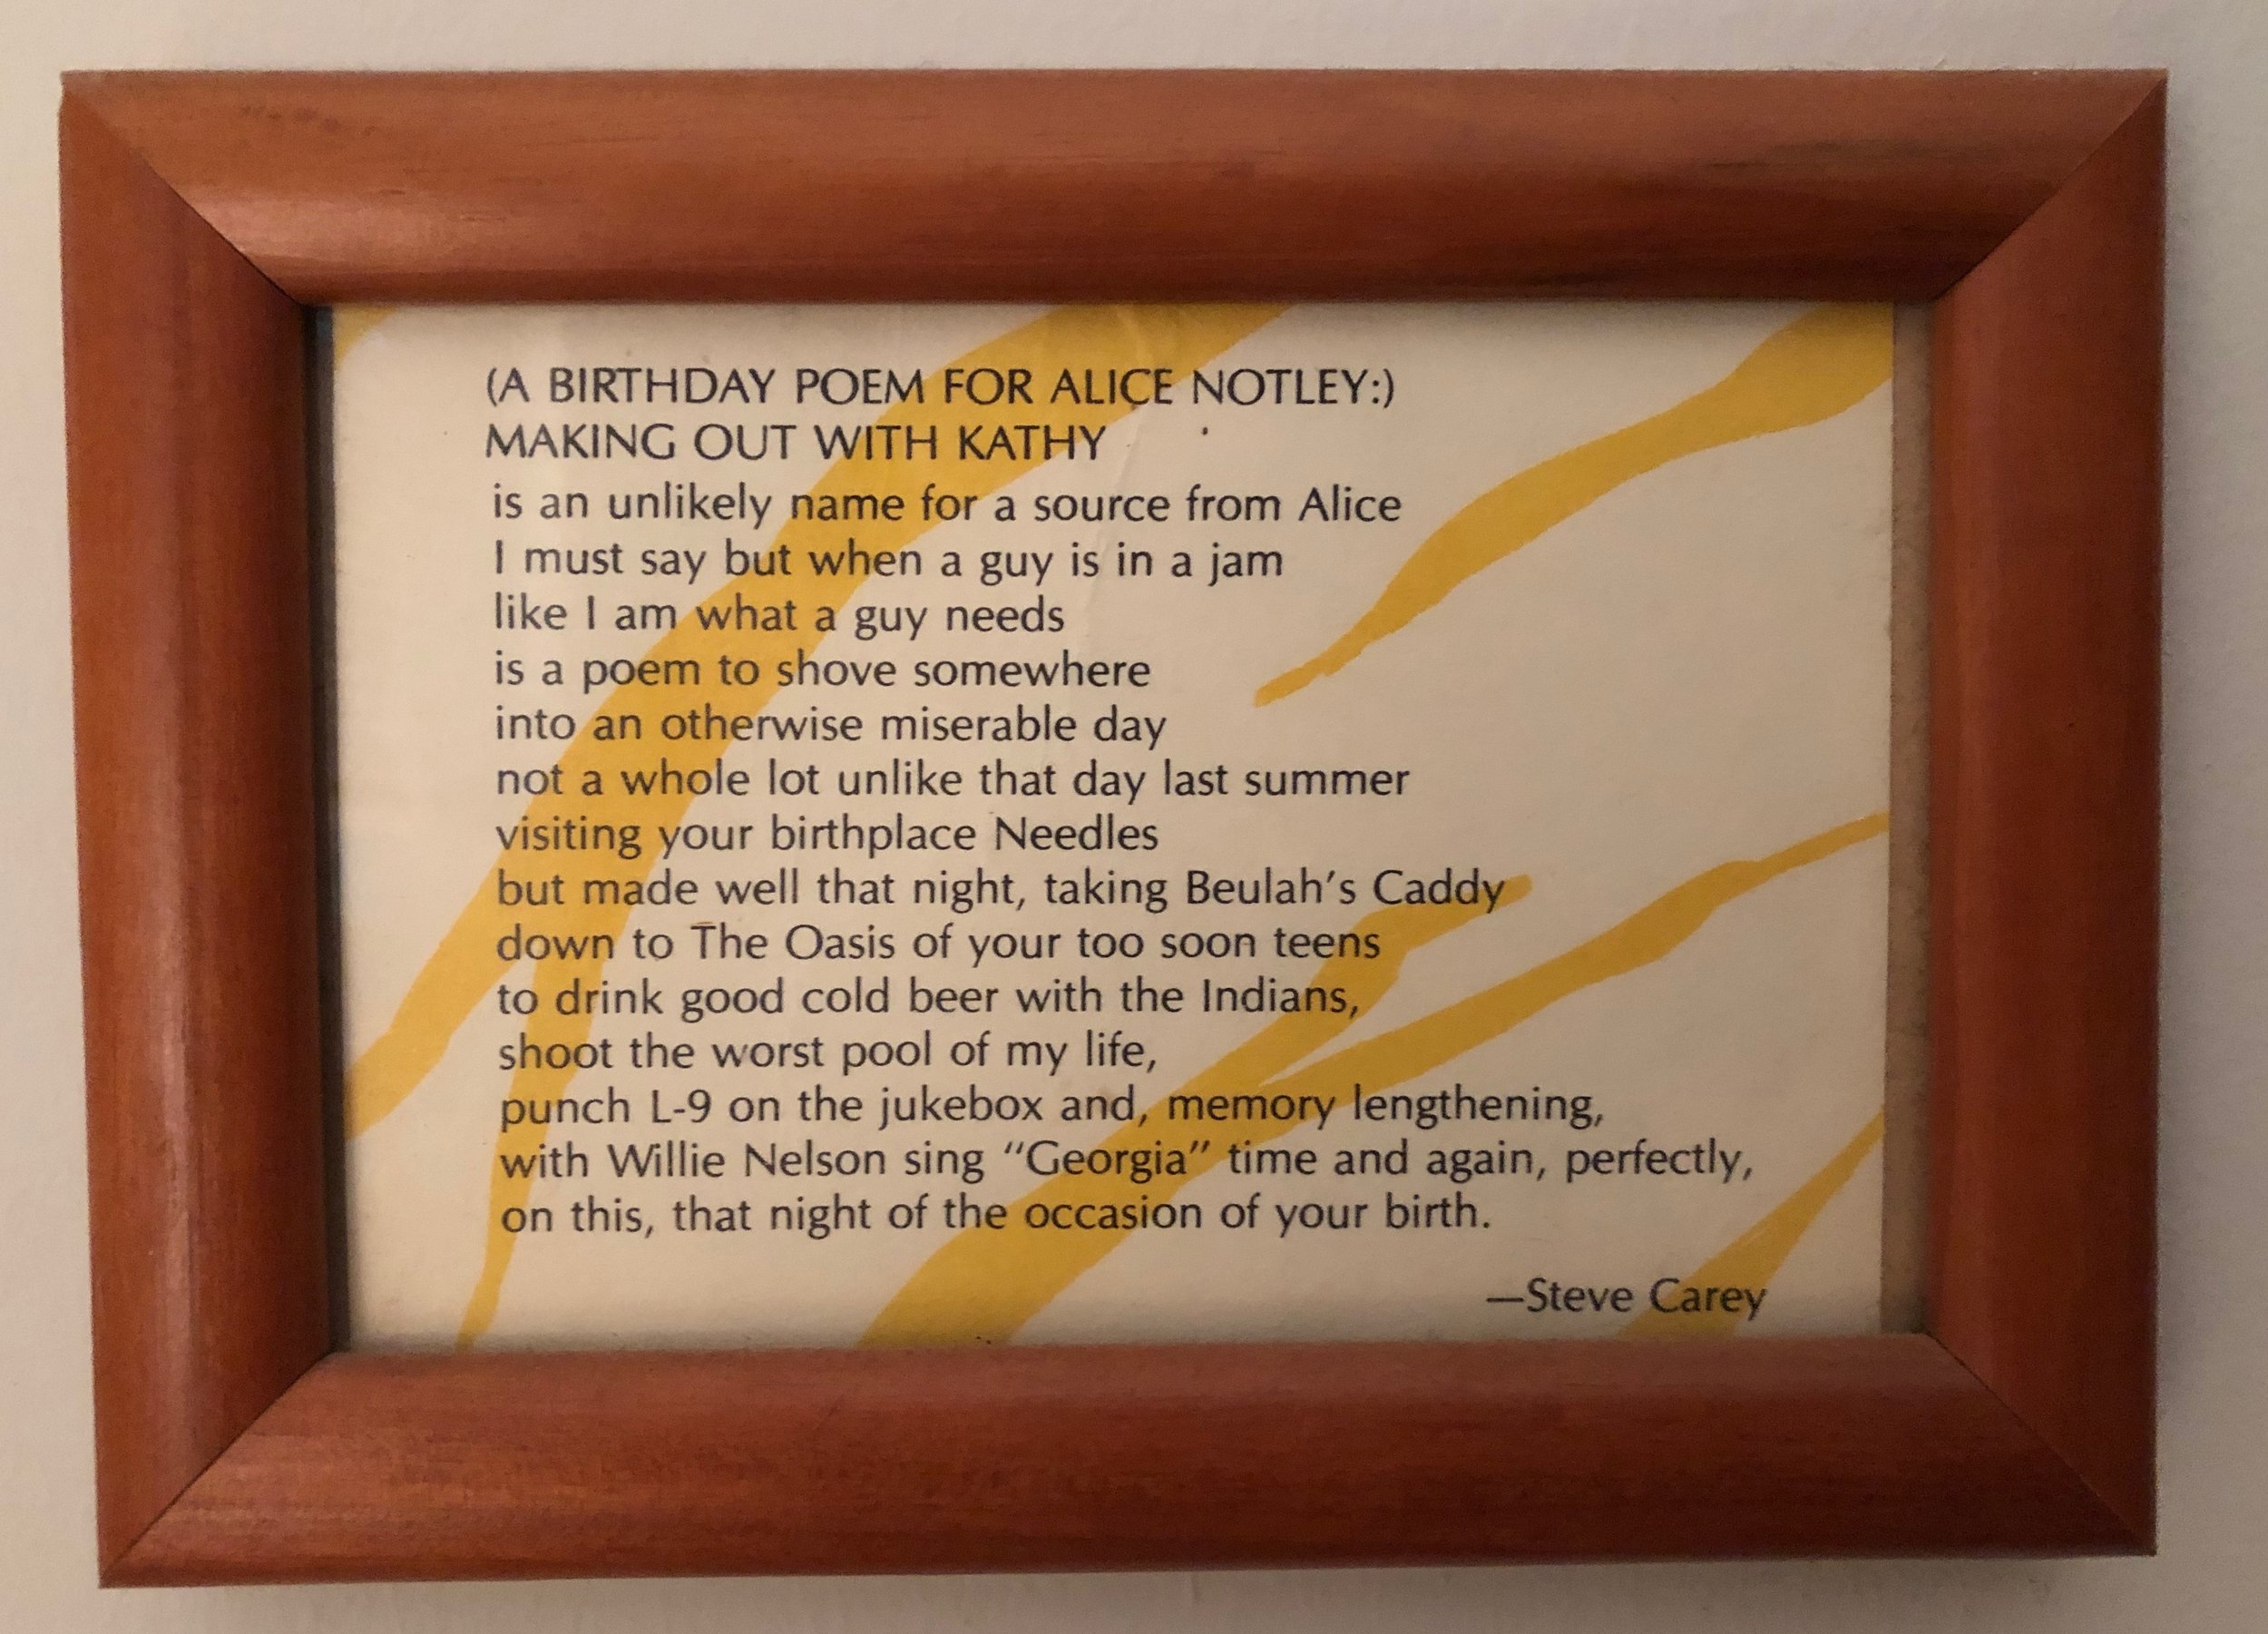 (A BIRTHDAY POEM FOR ALICE NOTLEY:)
MAKING OUT WITH KATHY
is an unlikely name for a source from Alice
I must say but when a guy is in a jam
like I am what a guy needs
is a poem to shove somewhere
into an otherwise miserable day
not a whole lot unlike that day last summer
visiting your birthplace Needles
but made well that night, taking Beulah's Caddy
down to The Oasis of your too soon teens
to drink good cold beer with the Indians,
shoot the worst pool of my life,
punch L-9 on the jukebox and, memory lengthening,
with Willie Nelson sing "Georgia" time and again, perfectly,
on this, that night of the occasion of your birth.
—Steve Carey